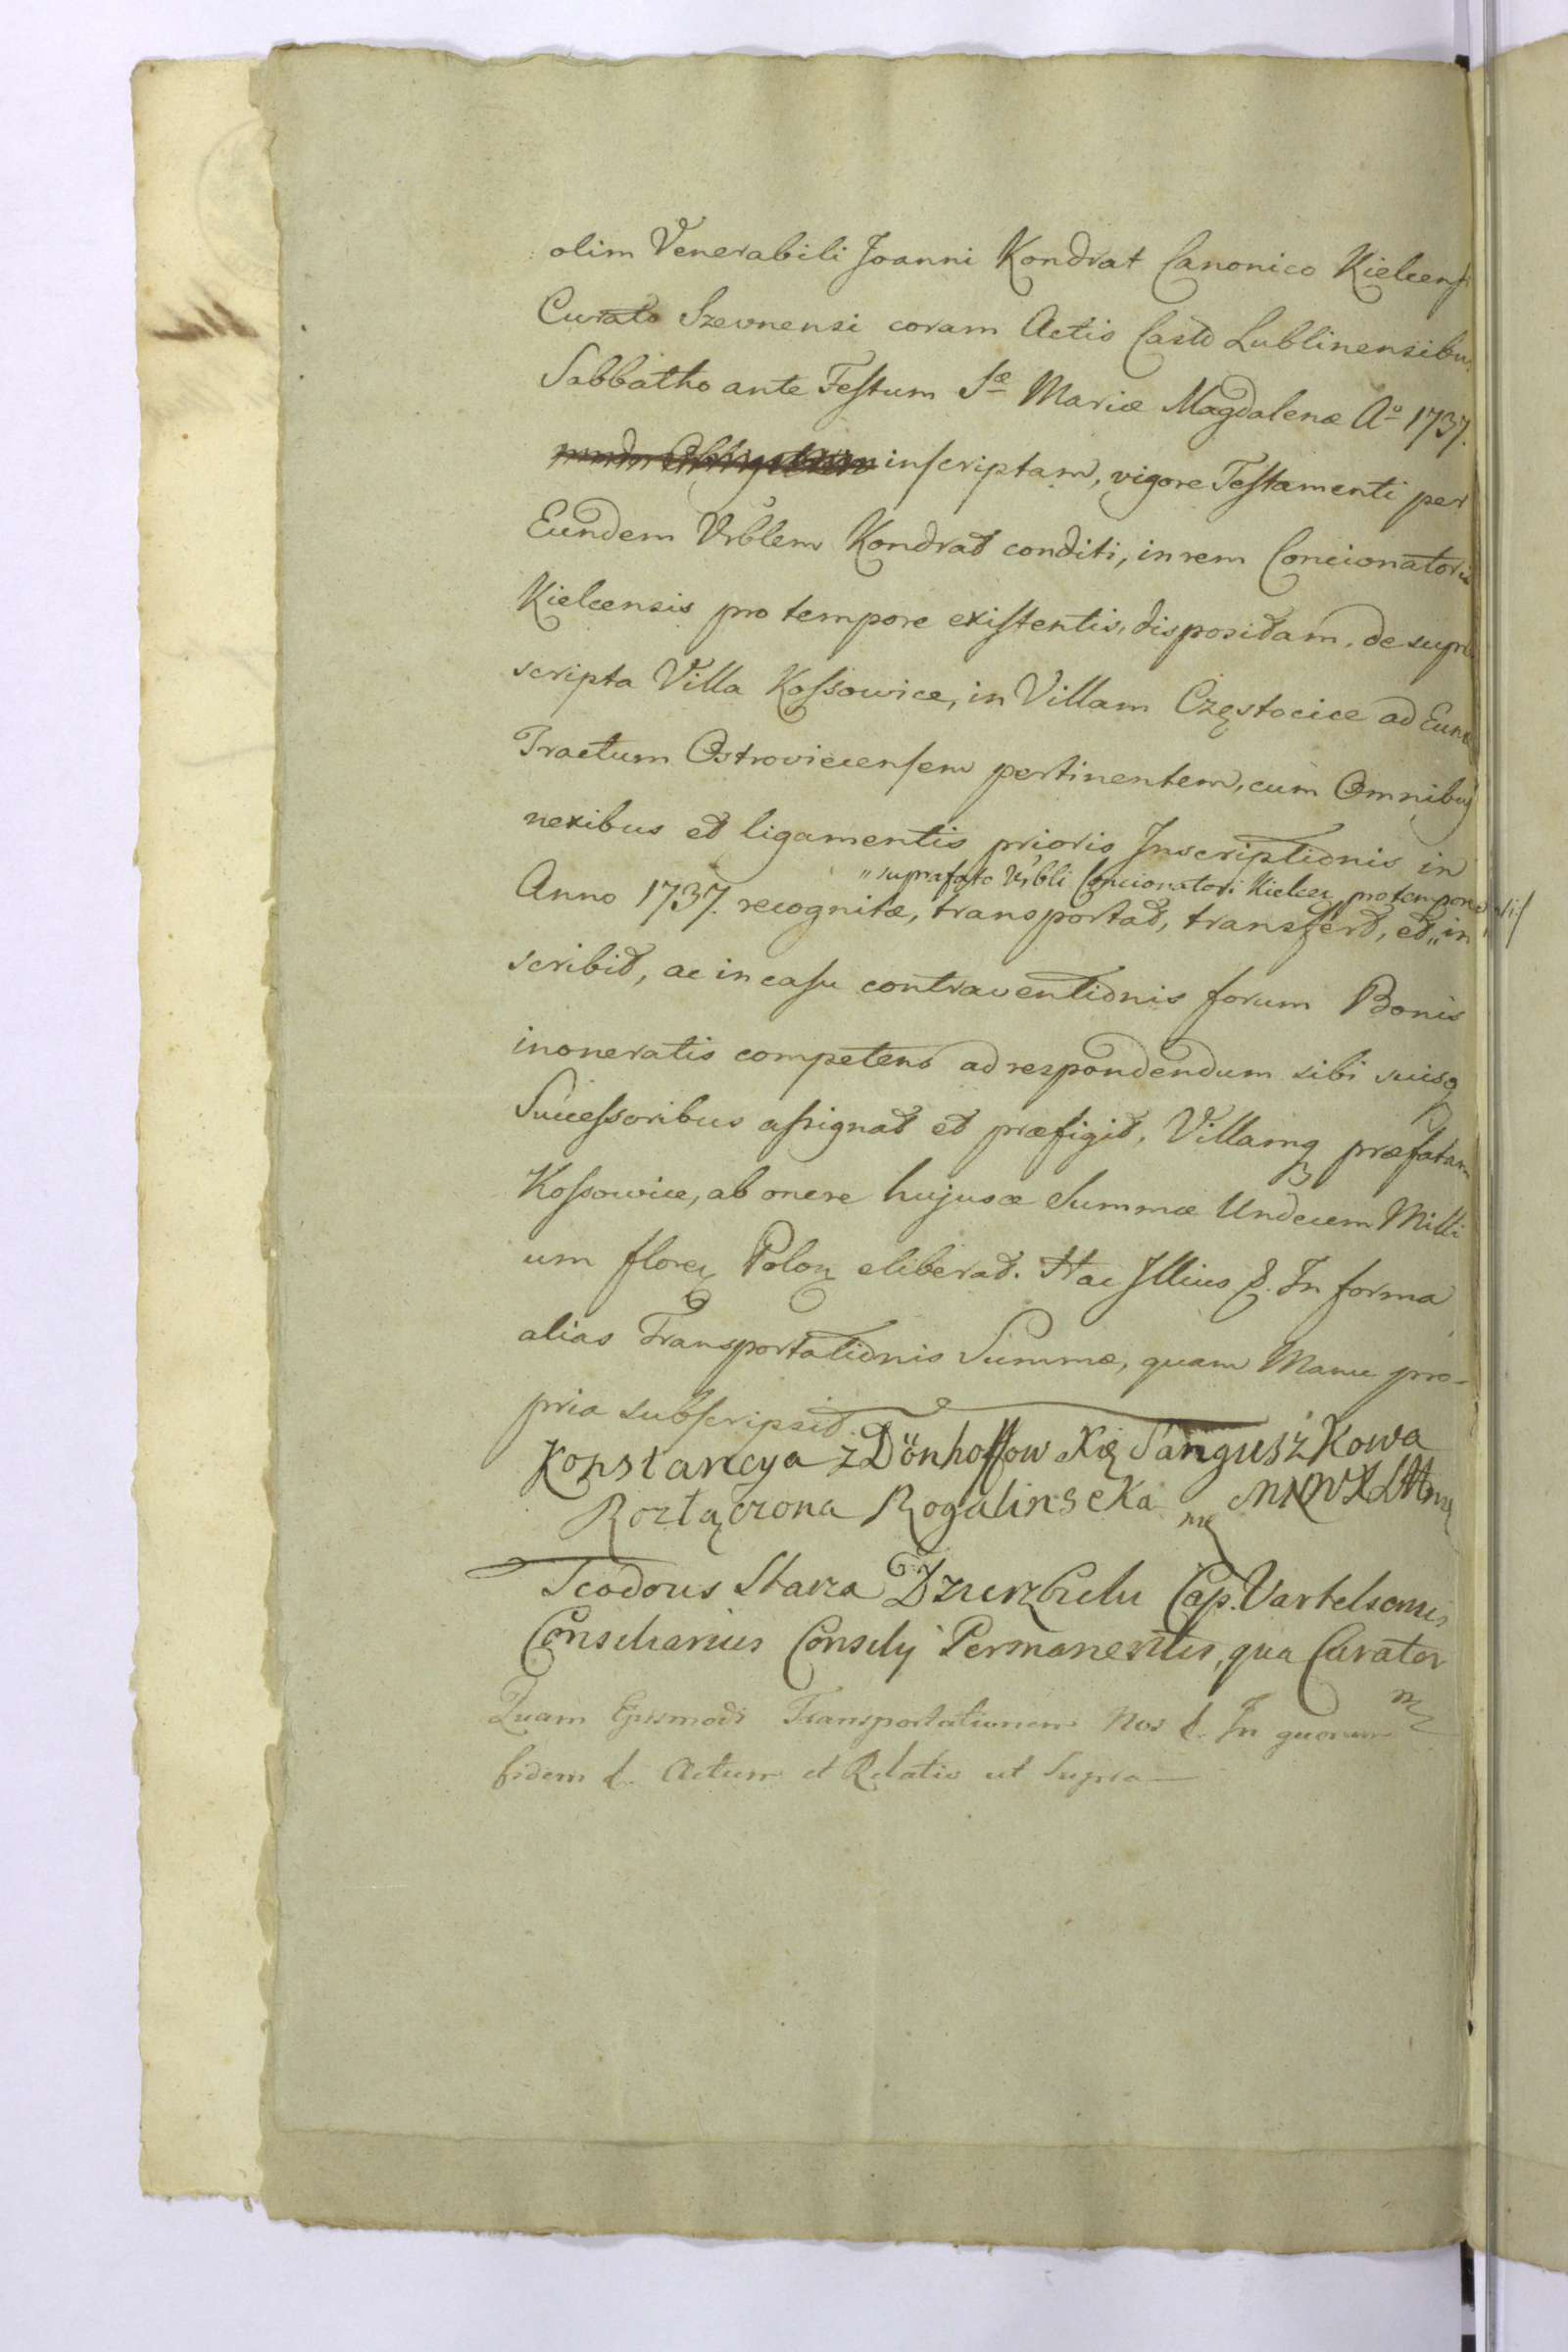 olim Venerabili Joanni Kondrat Canonico Kielcensi
Curato Szewnensi coram Actis Castr Lublinensibus
Sabbatho ante Festum Sæ Mariæ Magdalenæ Ao 1737.
inscriptam, vigore Testamenti per
Eundem Vrblem Kondrat conditi, in rem Concionatoris
Kielcensis pro tempore existentis, dispositam, de supra
scripta Villa Kossowice, in Villam Częstocice ad Eund
Tractum Ostroviecensem pertinentem, cum Omnibus
nexibus et ligamentis prioris Inscriptionis in
" suprafato Vrbli Concionatori Kielcen pro tempore
Anno 1737. recognitæ, transportat, transfert, et " in
scribit, ac in casu contraventionis forum Bonis
inoneratis competens ad respondendum sibi suisq
Successoribus assignat et præfigit, Villamq præfatam
Kossowice, ab onere hujusce Summæ Undecem Milli
um floren Polon eliberat. Hac Illius &. In forma
alias Transportationis Summæ, quam Manu pro-
pria subscripsit.
Konstancya z Dönhoffow Xię Sanguszkowa
Rozłączona Rogalinscka
Teodorus Starza Dzierzbicki Cap. Vartelsomis
Consiliarius Consilij Permanentis, qua Curator
Quam Ejusmodi Transportationem Nos &. In quorum
fidem &. Actum et Relatio ut Supra —